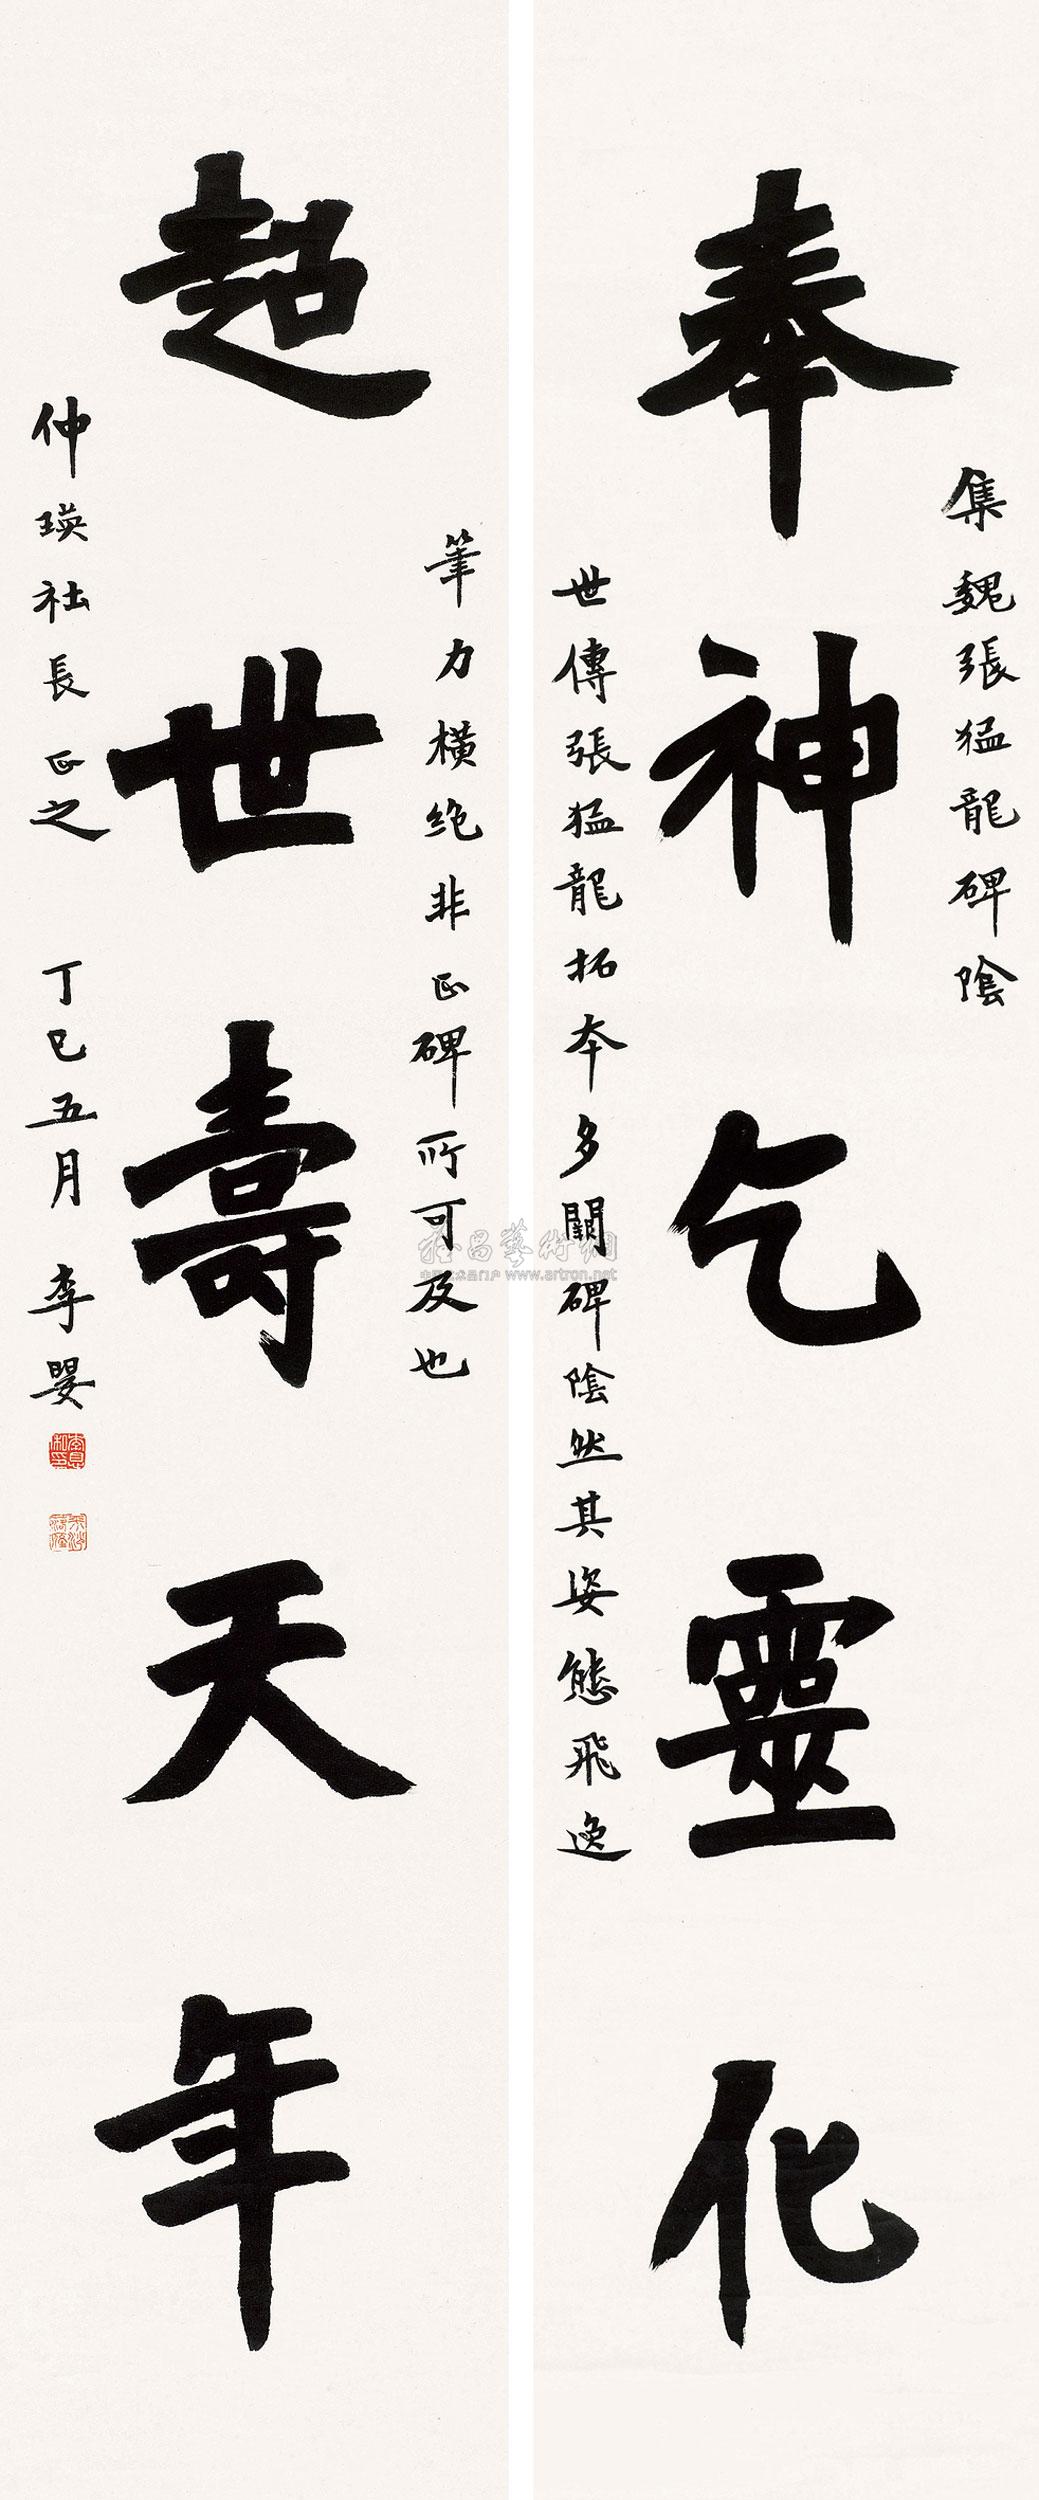 集魏張猛龍碑陰
奉神乞靈化
世傳張猛龍拓本多闕碑陰然其姿態飛逸
筆力橫絕非正碑所可及也
超世壽天年
仲瑛社長正之 丁巳五月 李嬰
www.artron.net